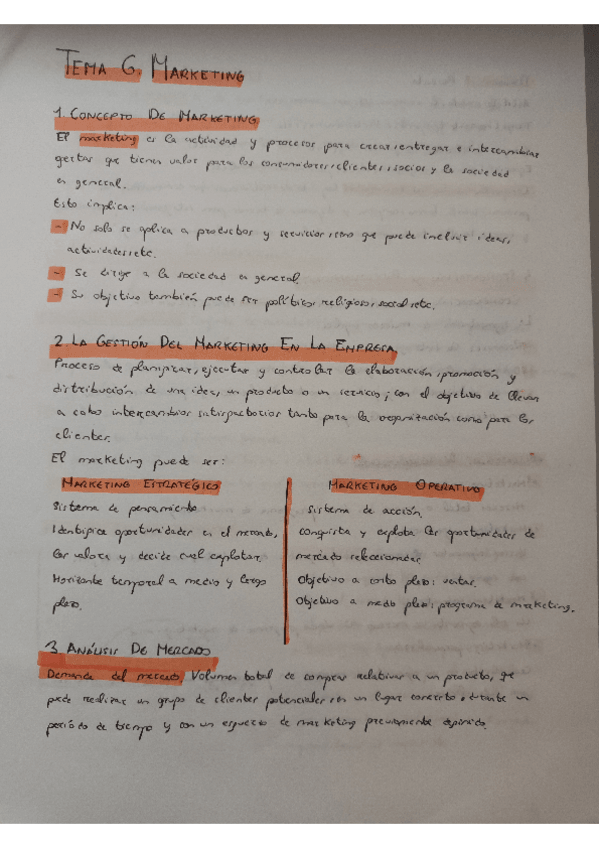 TEMA 6. MARKETING
1. CONCEPTO DE MARKETING
El marketing es la actividad y procesos para crear, entregar e intercambiar
gertas que tienen valor para los consumidores, clientes, socios y la sociedad
en general.
Esto implica:
- No solo se aplica a productos y servicios, sino que puede incluir ideas,
actividades, etc.
- Se dirige a la sociedad en general.
- Su objetivo también puede ser político, religioso, social, etc.
2. LA GESTIÓN DEL MARKETING EN LA EMPRESA
Proceso de planificar, ejecutar y controlar la elaboración, promoción y
distribución de una idea, un producto o un servicio, con el objetivo de llevar
a cabo intercambios satisfactorios tanto para la organización como para los
clientes.
El marketing puede ser:
MARKETING ESTRATÉGICO
Sistema de pensamiento
Identifica oportunidades en el mercado,
las valora y decide cual explotar.
Horizonte temporal a medio y largo
plazo.
MARKETING OPERATIVO
Sistema de acción
conquista y explota las oportunidades de
mercado seleccionadas.
Objetivo a corto plazo: ventas.
Objetivo a medio plazo: programa de marketing.
3. ANÁLISIS DE MERCADO
Demanda del mercado: Volumen total de compras relativas a un producto, que
puede realizar un grupo de clientes potenciales en un lugar concreto, durante un
periodo de tiempo y con un esfuerzo de marketing previamente definido.